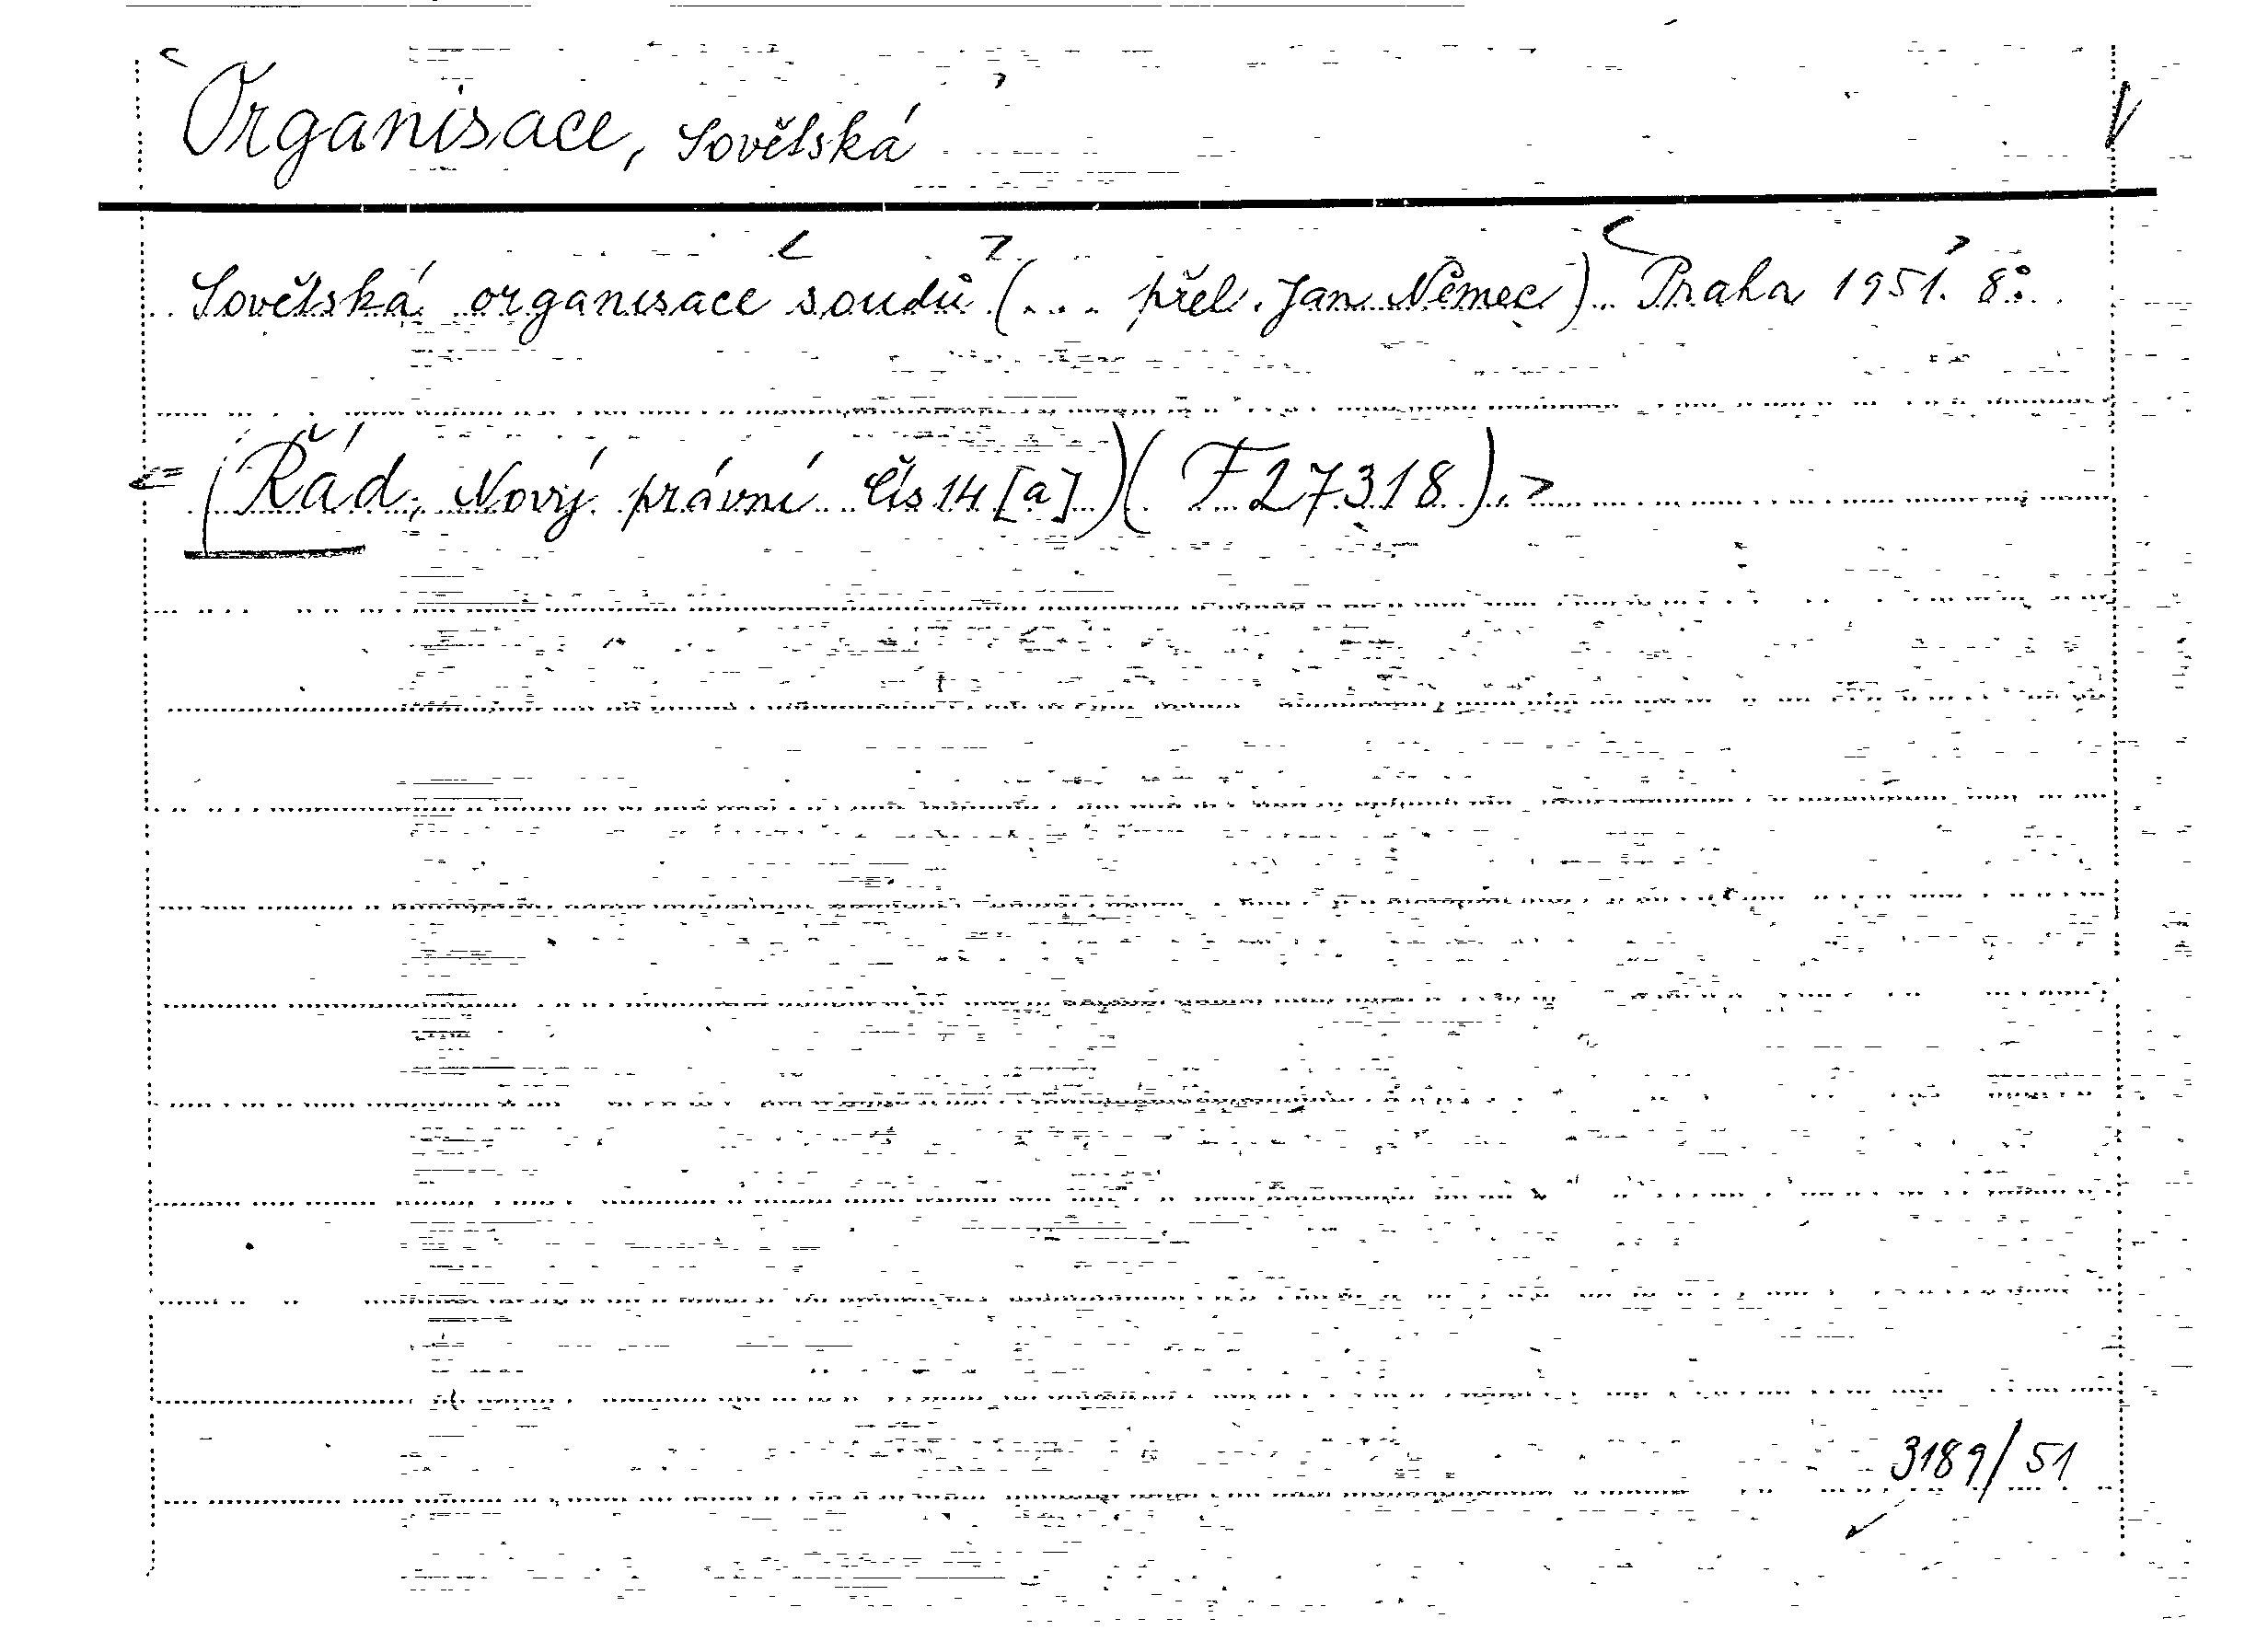 Organisace, Sovětská
Sovětská organisace soudů (... přel. Jan Němec) Praha 1951. 8°.
(Řád, Nový právní čís 14 [a]) (F 27318).
3189/51